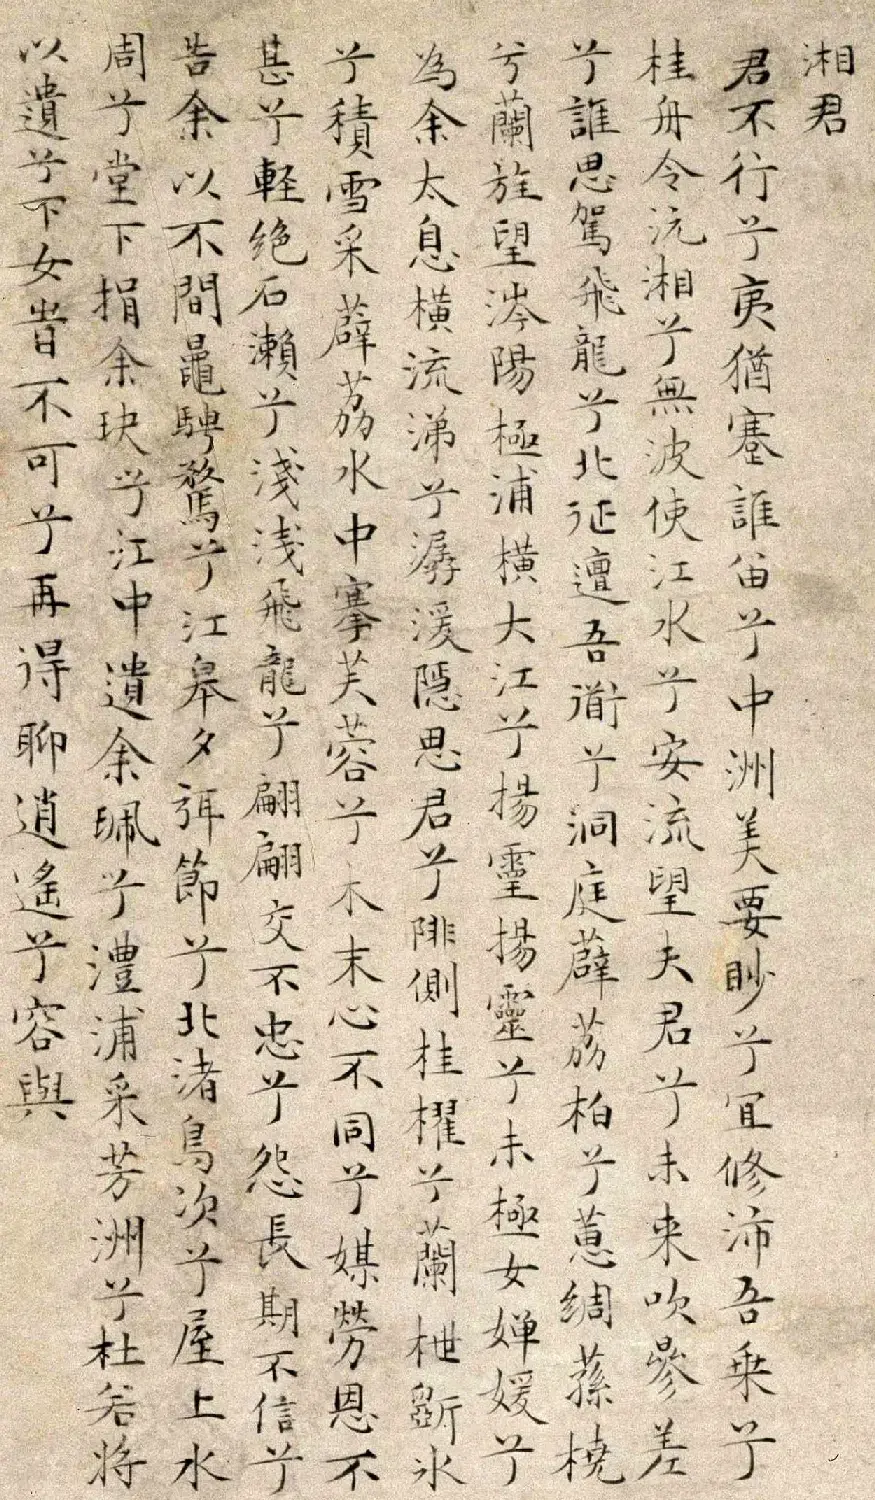 湘君
君不行兮夷猶蹇誰留兮中洲美要眇兮宜修沛吾乗兮
桂舟令沅湘兮無波使江水兮安流望夫君兮未来吹參差
兮誰思駕飛龍兮北征邅吾衜兮洞庭薜荔柏兮蕙綢蓀橈
兮蘭旌望涔陽極浦横大江兮揚靈揚靈兮未極女嬋媛兮
為余太息横流涕兮潺湲隱思君兮陫側桂櫂兮蘭枻斵氷
兮積雪采薜荔水中搴芙蓉兮木末心不同兮媒勞恩不
甚兮軽絶石瀨兮淺淺飛龍兮翩翩交不忠兮怨長期不信兮
告余以不間鼂騁騖兮江皋夕弭節兮北渚鳥次兮屋上水
周兮堂下捐余玦兮江中遺余珮兮澧浦采芳洲兮杜若将
以遺兮下女旹不可兮再得聊逍遙兮容與